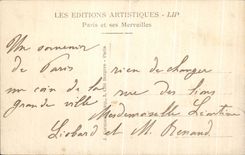 LES EDITIONS ARTISTIQUES - LIP
Paris et ses Merveilles
Un souvenir
de Paris rien de changer
un coin de la rue des lions
grande ville Mesdemoiselle Léontine
Liobard et M. Renaud